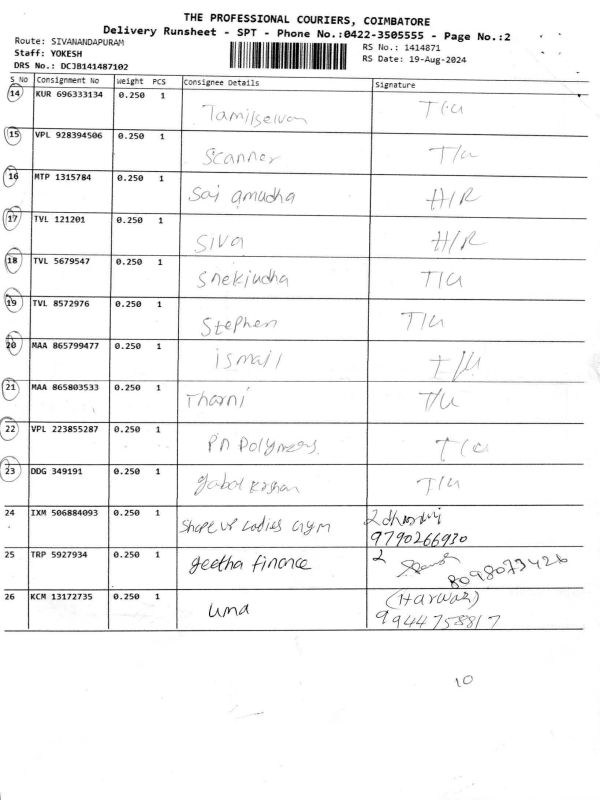 THE PROFESSIONAL COURIERS, COIMBATORE
Delivery Runsheet - SPT - Phone No.:0422-3505555 - Page No.:2
Route: SIVANANDAPURAM
Staff: YOKESH
DRS No.: DCJB141487102
RS No.: 1414871
RS Date: 19-Aug-2024
S_No Consignment No Weight PCS Consignee Details Signature
14 KUR 696333134 0.250 1 Tamilselvan T/U
15 VPL 928394506 0.250 1 Scanner T/U
16 MTP 1315784 0.250 1 Sai amudha H/R
17 TVL 121201 0.250 1 Siva H/R
18 TVL 5679547 0.250 1 T/U
19 TVL 8572976 0.250 1 Stephen T/U
20 MAA 865799477 0.250 1 ismail T/U
21 MAA 865803533 0.250 1 Tharni T/U
22 VPL 223855287 0.250 1 Pn Polymers T/U
23 DDG 349191 0.250 1 T/U
24 IXM 506884093 0.250 1 Shape up Ladies Gym 2
9790266930
25 TRP 5927934 0.250 1 geetha finance 2
8098073426
26 KCM 13172735 0.250 1 uma
9944758817
10